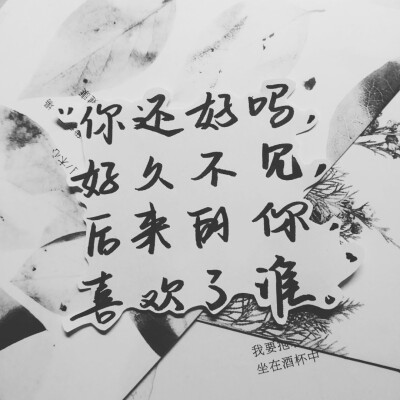 “你还好吗，
好久不见，
后来的你，
喜欢了谁。”
我要抱
坐在酒杯中